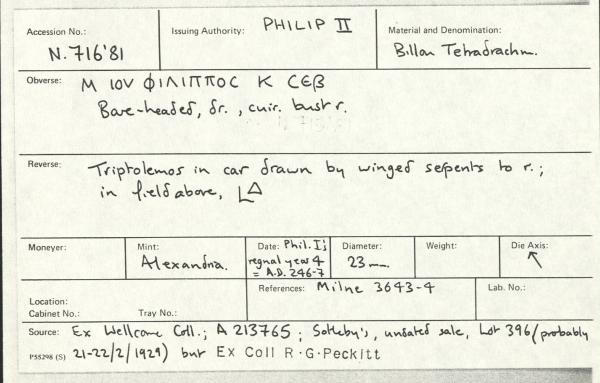 Accession No.: N. 716'81
Issuing Authority: PHILIP II
Material and Denomination: Billon Tetradrachm.
Obverse: M ΙΟV ΦΙΛΙΠΠΟC Κ CЄΒ
Bare-headed, dr., cuir. bust r.
Reverse: Triptolemos in car drawn by winged serpents to r.;
in field above, LΔ
Moneyer:
Mint: Alexandria.
Date: Phil. I;
regnal year 4
= A.D. 246-7
Diameter: 23 mm.
Weight:
Die Axis: ↖
Location:
Cabinet No.: Tray No.:
References: Milne 3643-4
Lab. No.:
Source: Ex Wellcome Coll.; A 213765; Sotheby's, undated sale, Lot 396 (probably
P55298 (S) 21-22/2/1929) but Ex Coll R.G.Peckitt